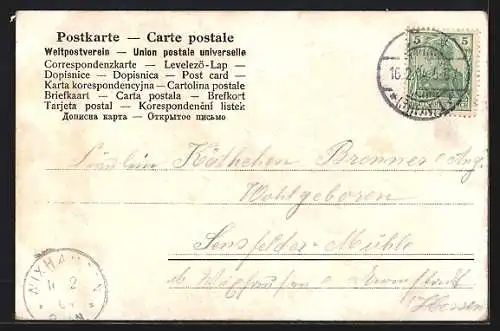 Postkarte — Carte postale
Weltpostverein — Union postale universelle
Correspondenzkarte — Levelező-Lap —
Dopisnice — Dopisnica — Post card —
Karta korespondencyjna — Cartolina postale
Briefkaart — Carta postala — Brefkort
Tarjeta postal — Korespondenčni listek
Дописна карта — Открытое письмо
5 5
16.2.
Fräulein Käthchen Brenner
Wohlgeboren
Sensfelder-Mühle
Darmstadt
Hessen
NIXHAUSEN
2